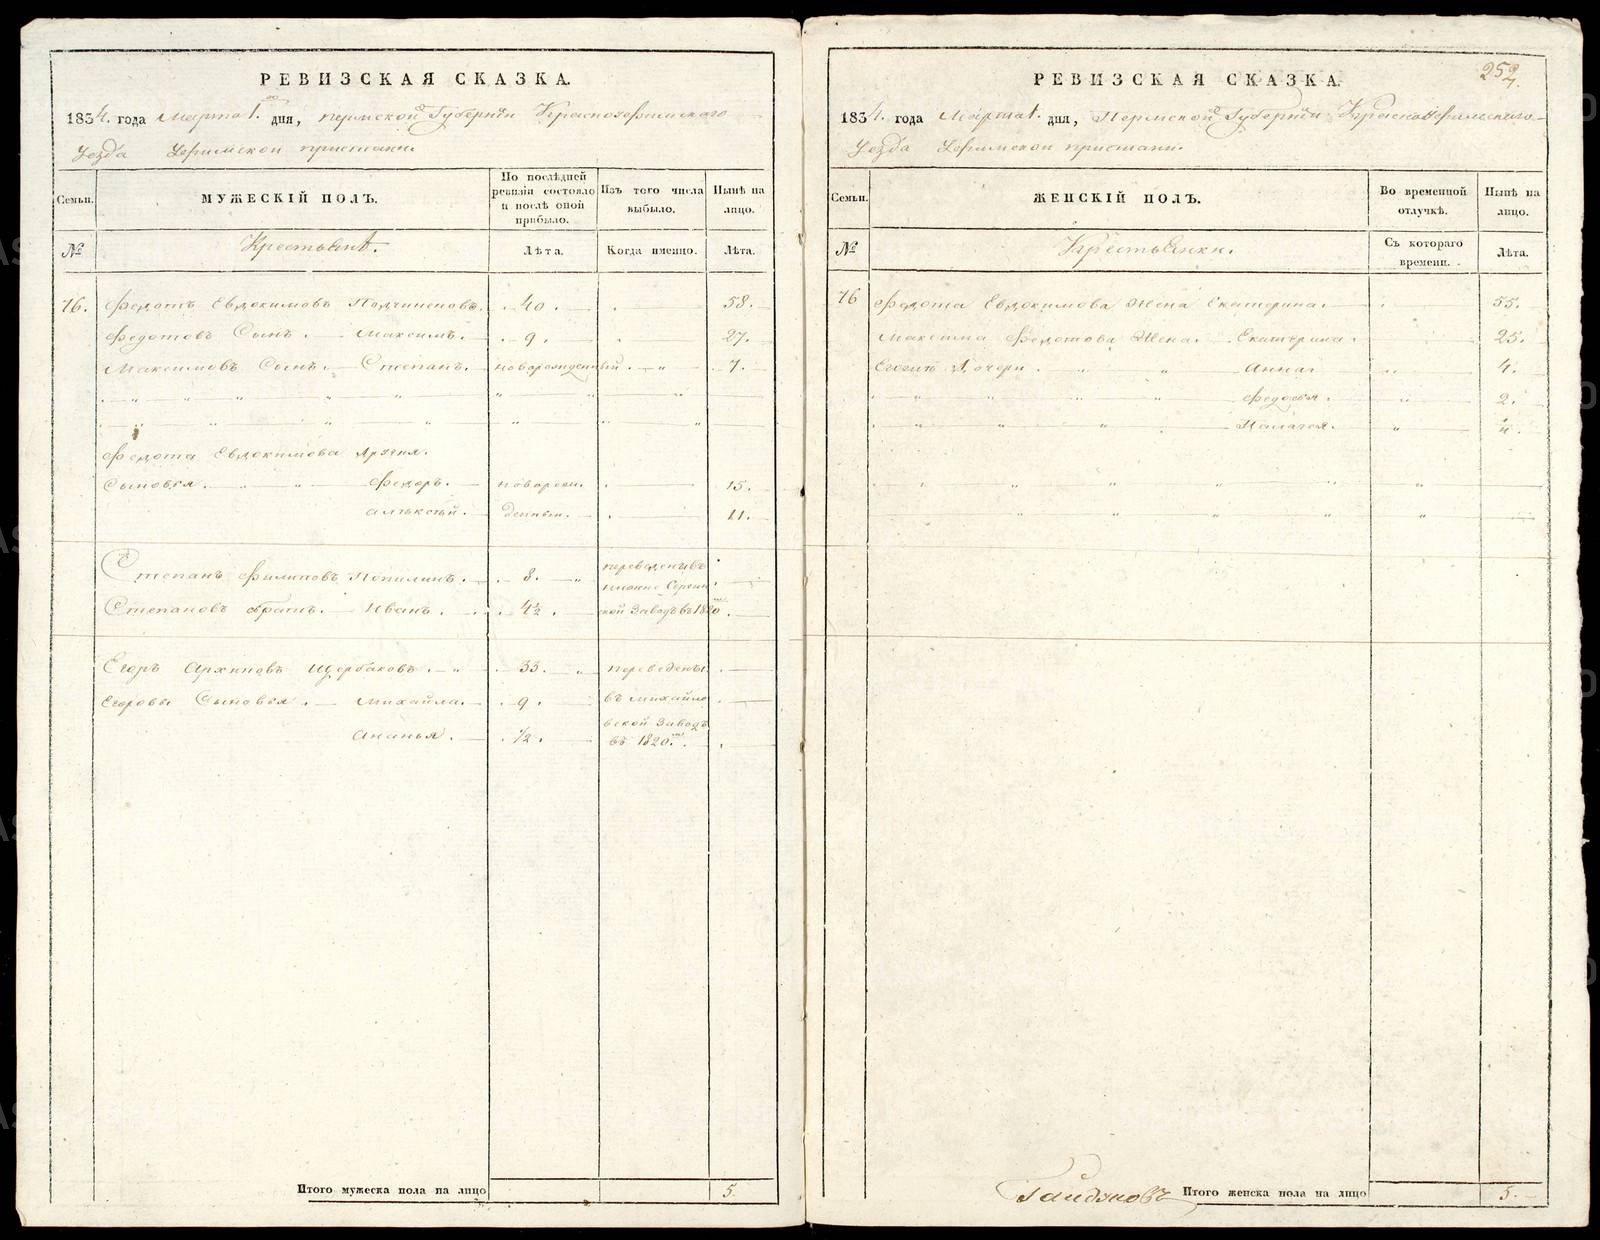 РЕВИЗСКАЯ СКАЗКА.
1834. года Марта 1. дня, Пермской Губернiи Красноуфимскаго
Уезда Уфимской пристани.
Семьи.
МУЖЕСКIЙ ПОЛЪ.
По послѣдней ревизiи состояло и послѣ оной прибыло.
Изъ того числа выбыло.
Нынѣ на лицо.
№
Крестьянѣ.
Лѣта.
Когда именно.
Лѣта.
76. Федотъ Евдокимовъ Подчиненовъ. 40. 58.
Федотовъ Сынъ. Максимъ. 9. 27.
Максимовъ Сынъ. Степанъ. новорожденный. 7.
Федота Евдокимова другия.
Сыновья. Федоръ. новорож. 15.
Алѣксѣй. денныи. 11.
Степанъ Филиповъ Попилинъ. 8. переведены въ
нижне Сергин
Степановъ братъ. Иванъ. 4½. ской Заводъ въ 1820
Егоръ Архиповъ Щербаковъ. 33. переведены
Егоровы Сыновья. Михайла. 9. въ Михайло
вской Заводъ
Ананья. ½. въ 1820.
Итого мужеска пола на лицо 5.
252
РЕВИЗСКАЯ СКАЗКА.
1834. года Марта 1. дня, Пермской Губернiи Красноуфимскаго
Уезда Уфимской пристани.
Семьи.
ЖЕНСКIЙ ПОЛЪ.
Во временной отлучкѣ.
Нынѣ на лицо.
№
Крестьянки.
Съ котораго времени.
Лѣта.
76 Федота Евдокимова Жена Екатерина. 55.
Максима Федотова Жена. Екатерина. 25.
Егожъ дочери. Анна. 4.
Федосья. 2.
Палагея.
Гайдуковъ
Итого женска пола на лицо 5.